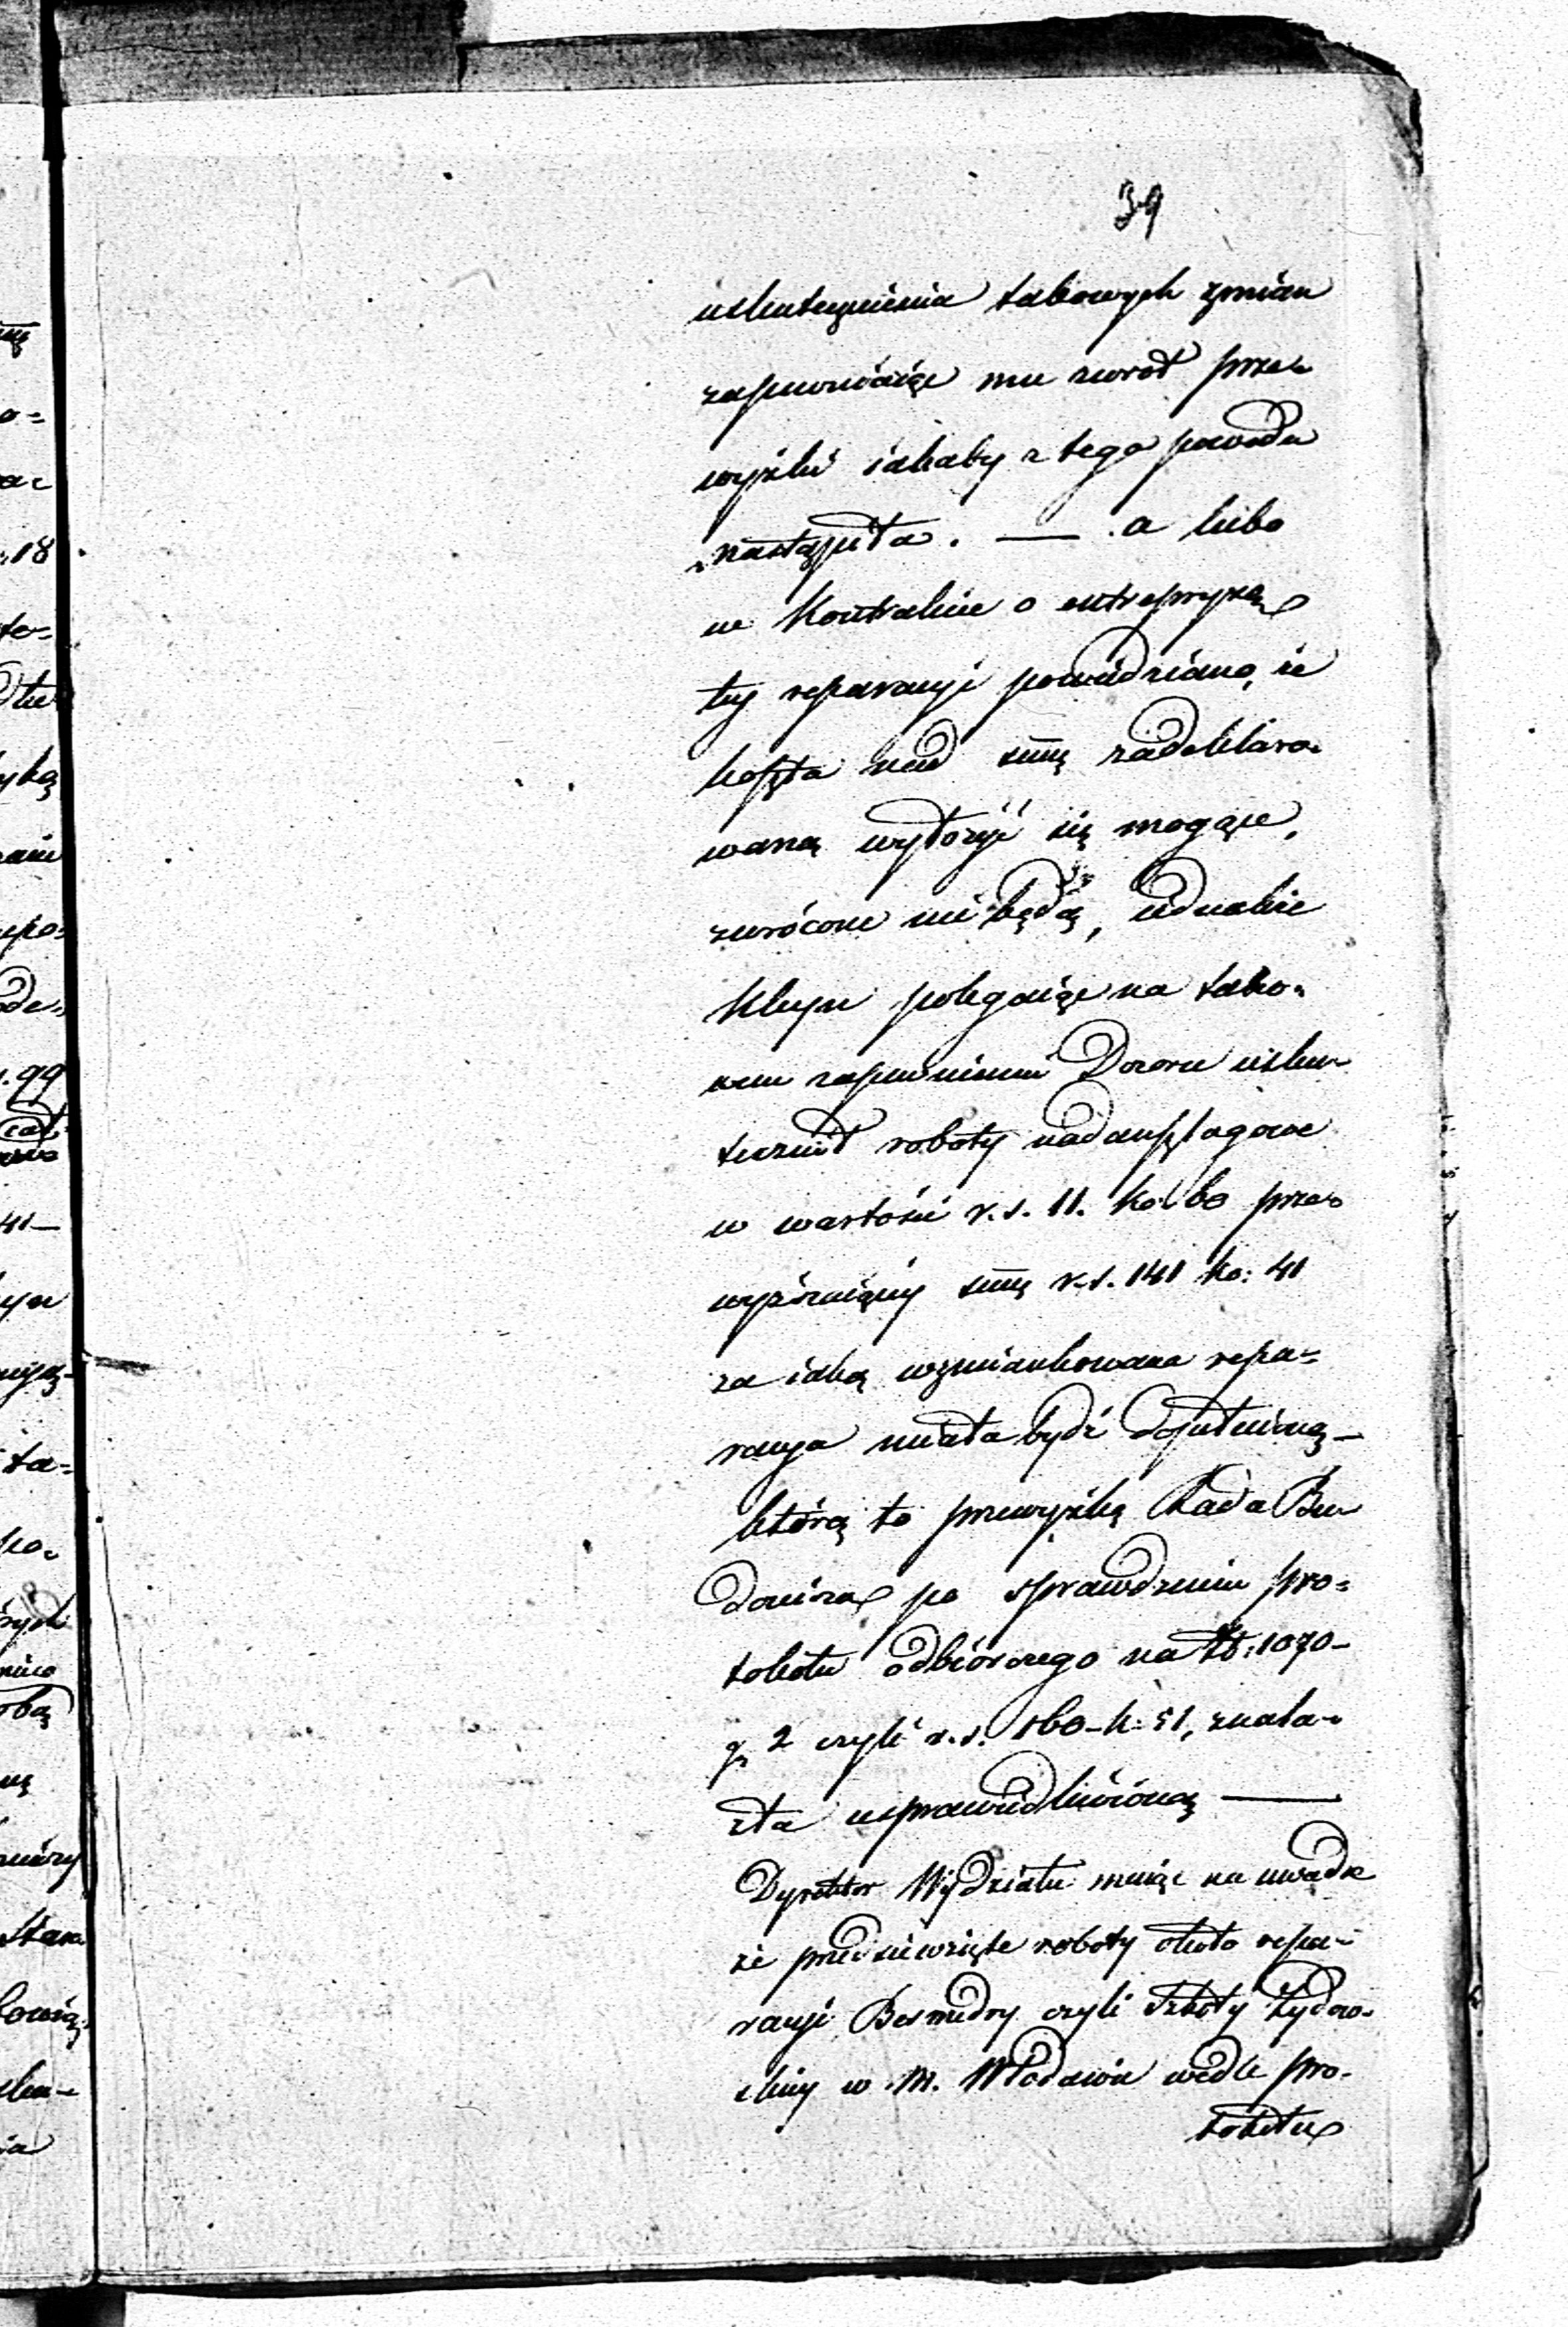 39
uskutecznienia takowych zmian
zapewniaiąc mu zwrot prze=
wyżki iakaby z tego powodu
nastąpiła. — a lubo
w Kontrakcie o entrepryzę
tey reparacyi powiedziano, że
koszta nad sum̄ę zadeklaro=
waną wyłożyć się mogące,
zwrócone nie będą, iednakże
Kleyn polegaiąc na tako=
wem zapewnieniu Dozoru usku=
tecznił roboty nadanszlagowe
w wartości r. s. 11. ko: 60 prze=
wyższaiący sum̄ę r. s. 141 ko: 41
za iaką wzmiankowana repa=
racya miała bydź dopełnioną —
którą to przewyżkę Rada Bu=
downicza po sprawdzeniu pro=
tokołu odbiorczego na Zł: 1070 —
gr 2 czyli r. s. 160 – k: 51, znala=
zła usprawiedliwioną —
Dyrektor Wydziału maiąc na uwadze
że przedsięwzięte roboty około repa=
racyi Besmedry czyli Szkoły Żydow=
skiey w M. Włodawie wedle pro=
tokołu